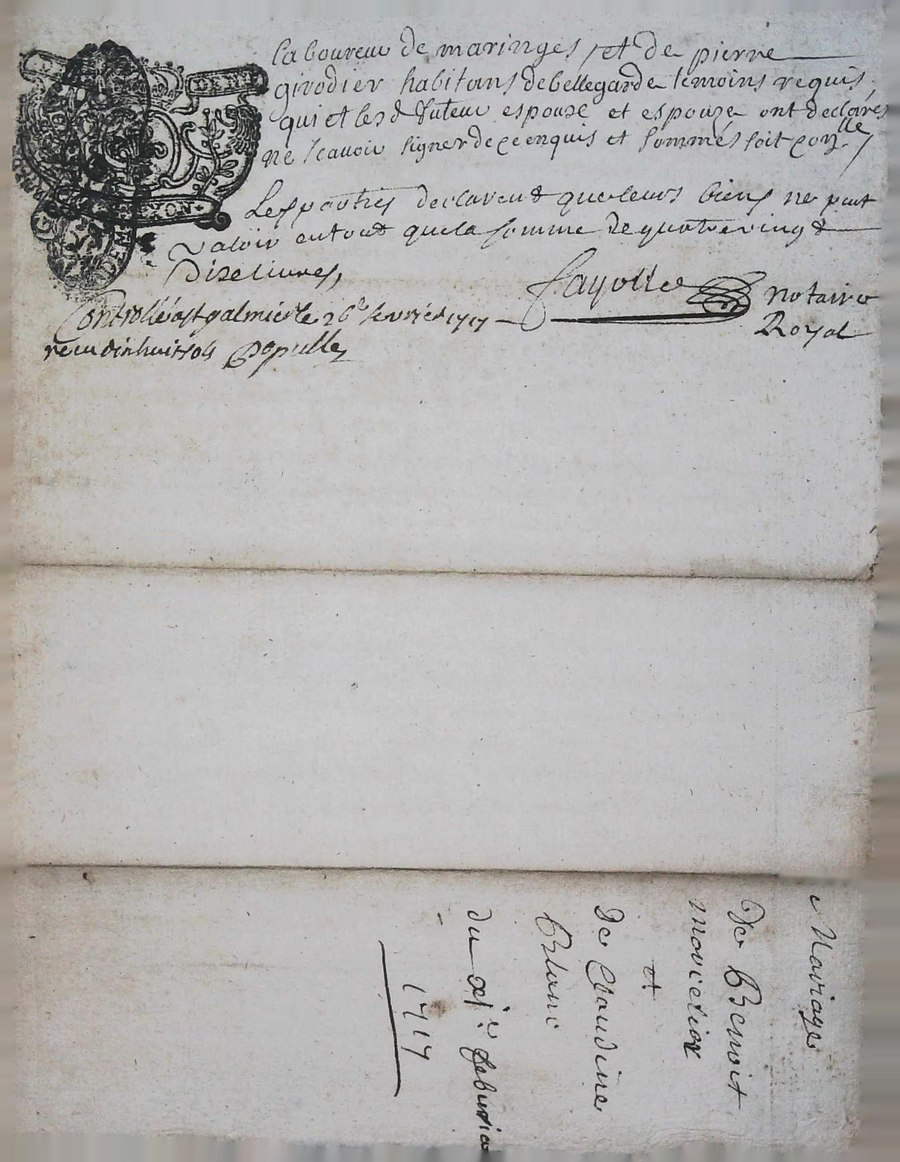 laboureur de maringes et de pierre
girodier habitans de bellegarde temoins requis
qui et lesd futeur espoux et espouze ont declarés
ne scavoir signer de ce enquis et sommés soit con.lle
Les parties declarent que leurs biens ne peut
valoir en tout que la somme de quatre vingt
dixe livres,
fayolle notaire
Royal
Controllé a st galmier le 26e fevrier 1717
receu dix huit sols
Mariage
De Benoit
et
De Claudine
Blanc
du febvrier
1717
DENI